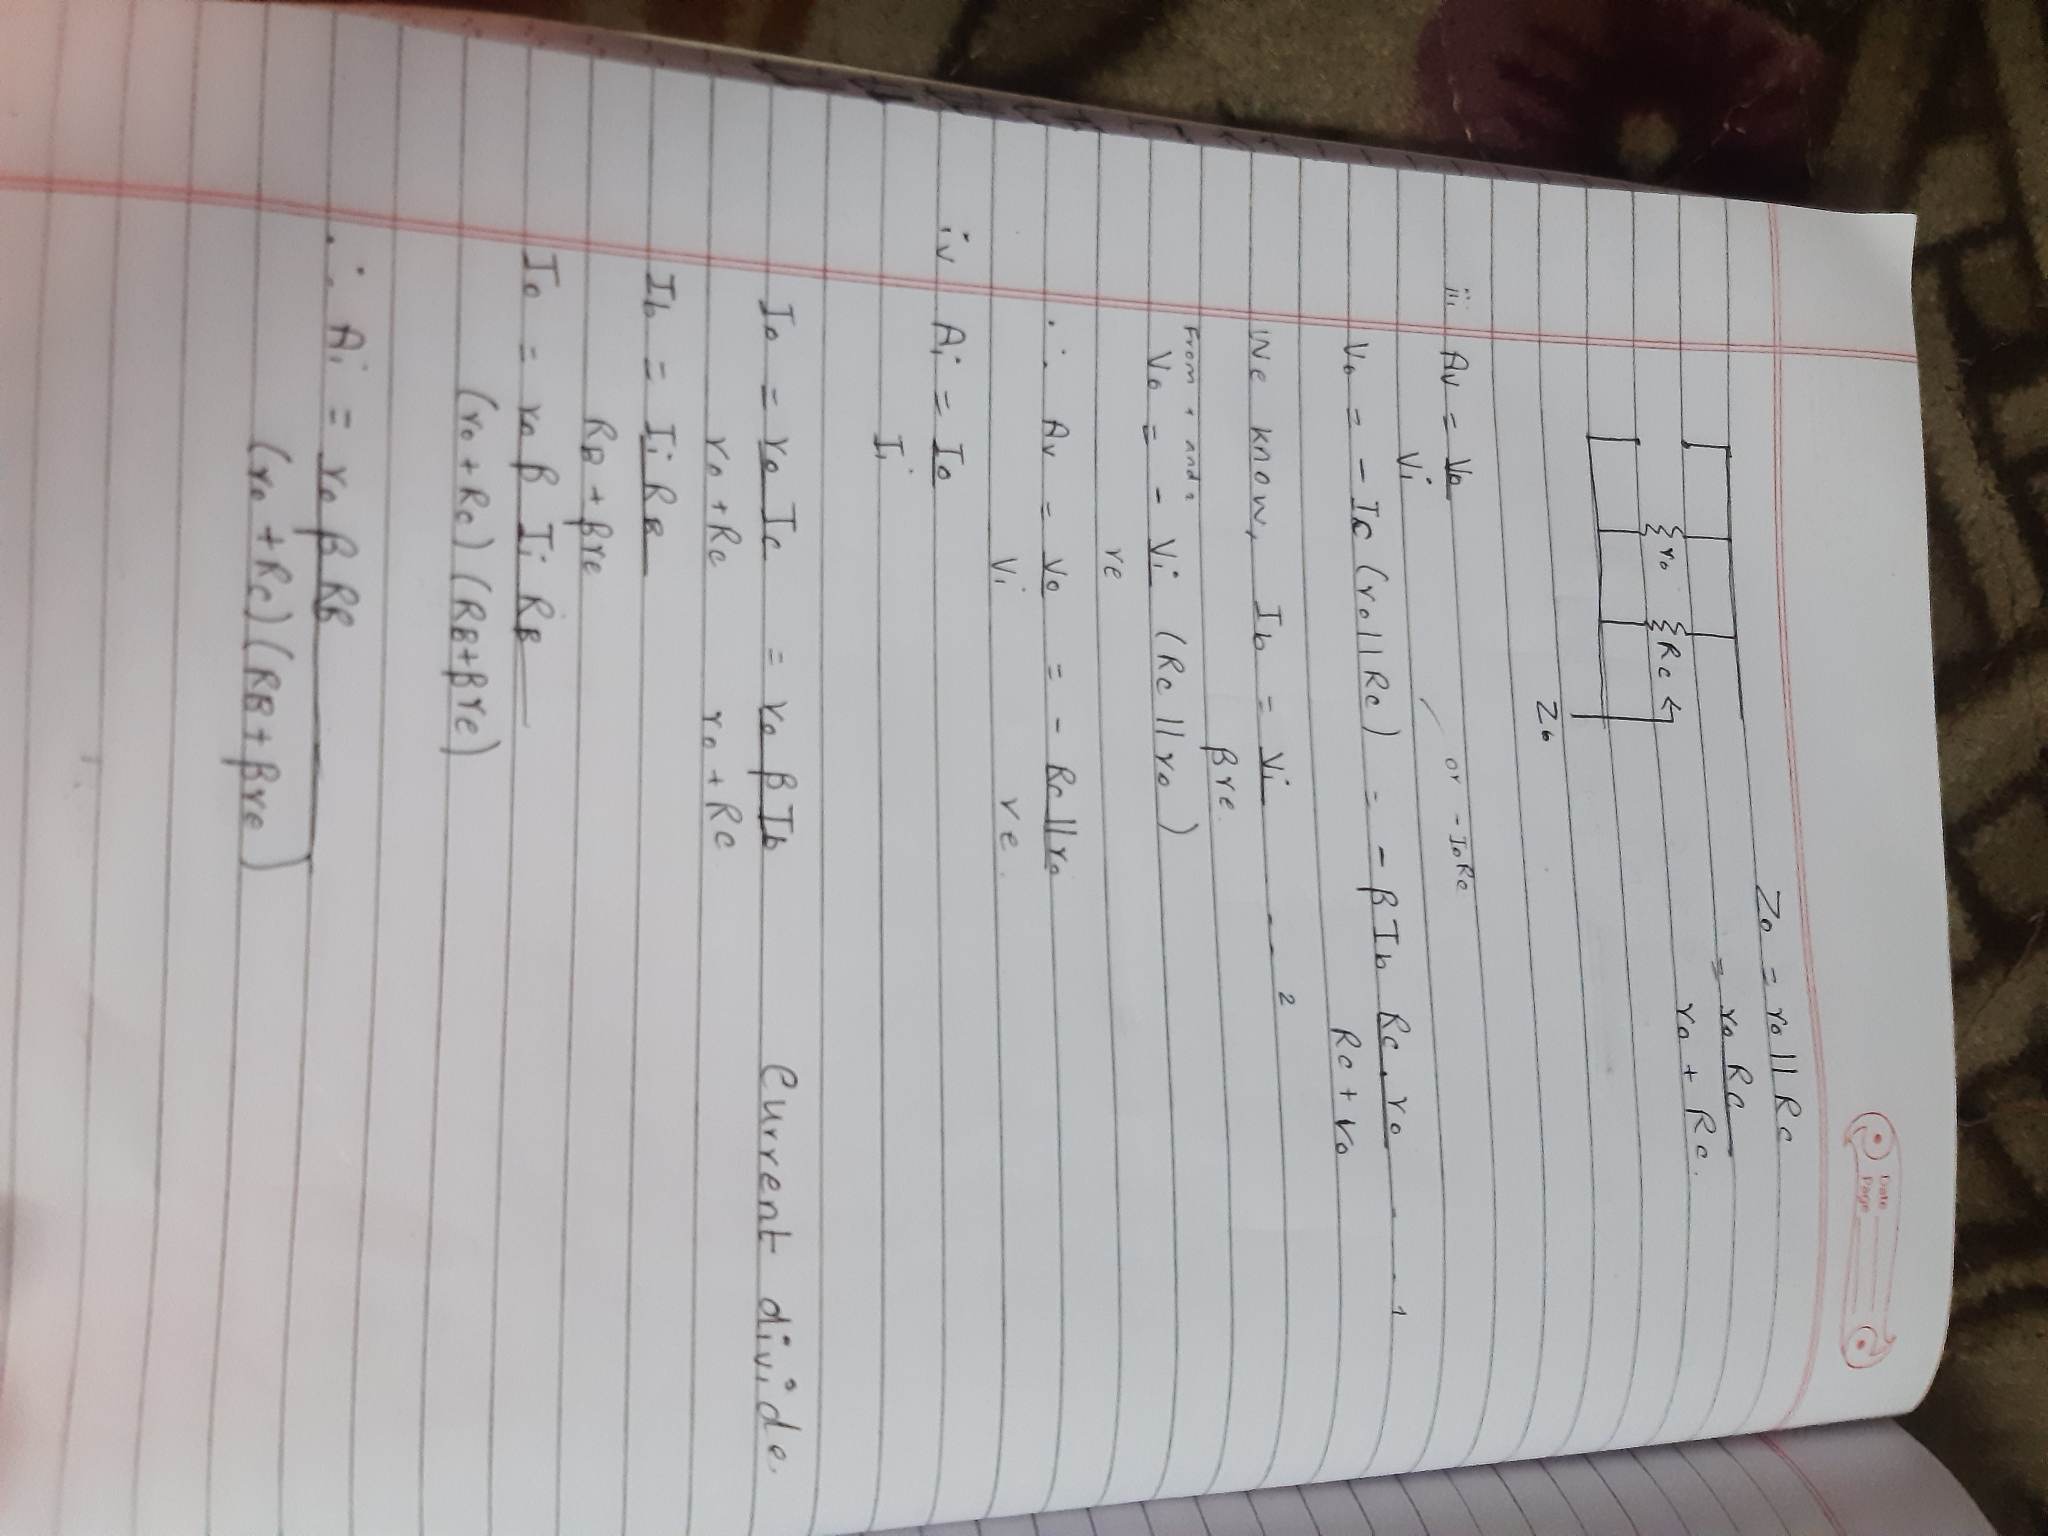 Date
Page
Zo = ro || Rc
= ro Rc
ro + Rc.
ro Rc
Zo
iii Av = Vo
Vi
or - IoRc
Vo = - Ic (ro || Rc) = - β Ib Rc . ro --- 1
Rc + ro
We know, Ib = Vi --- 2
βre.
From 1 and 2
Vo = - Vi (Rc || ro)
re
∴ Av = Vo = - Rc || ro
Vi re.
iv Ai = Io
Ii
Io = ro Ic = ro β Ib Current divide.
ro + Rc ro + Rc
Ib = Ii RB
RB + βre
Io = ro β Ii RB
(ro + Rc) (RB + βre)
∴ Ai = ro β RB
(ro + Rc) (RB + βre)